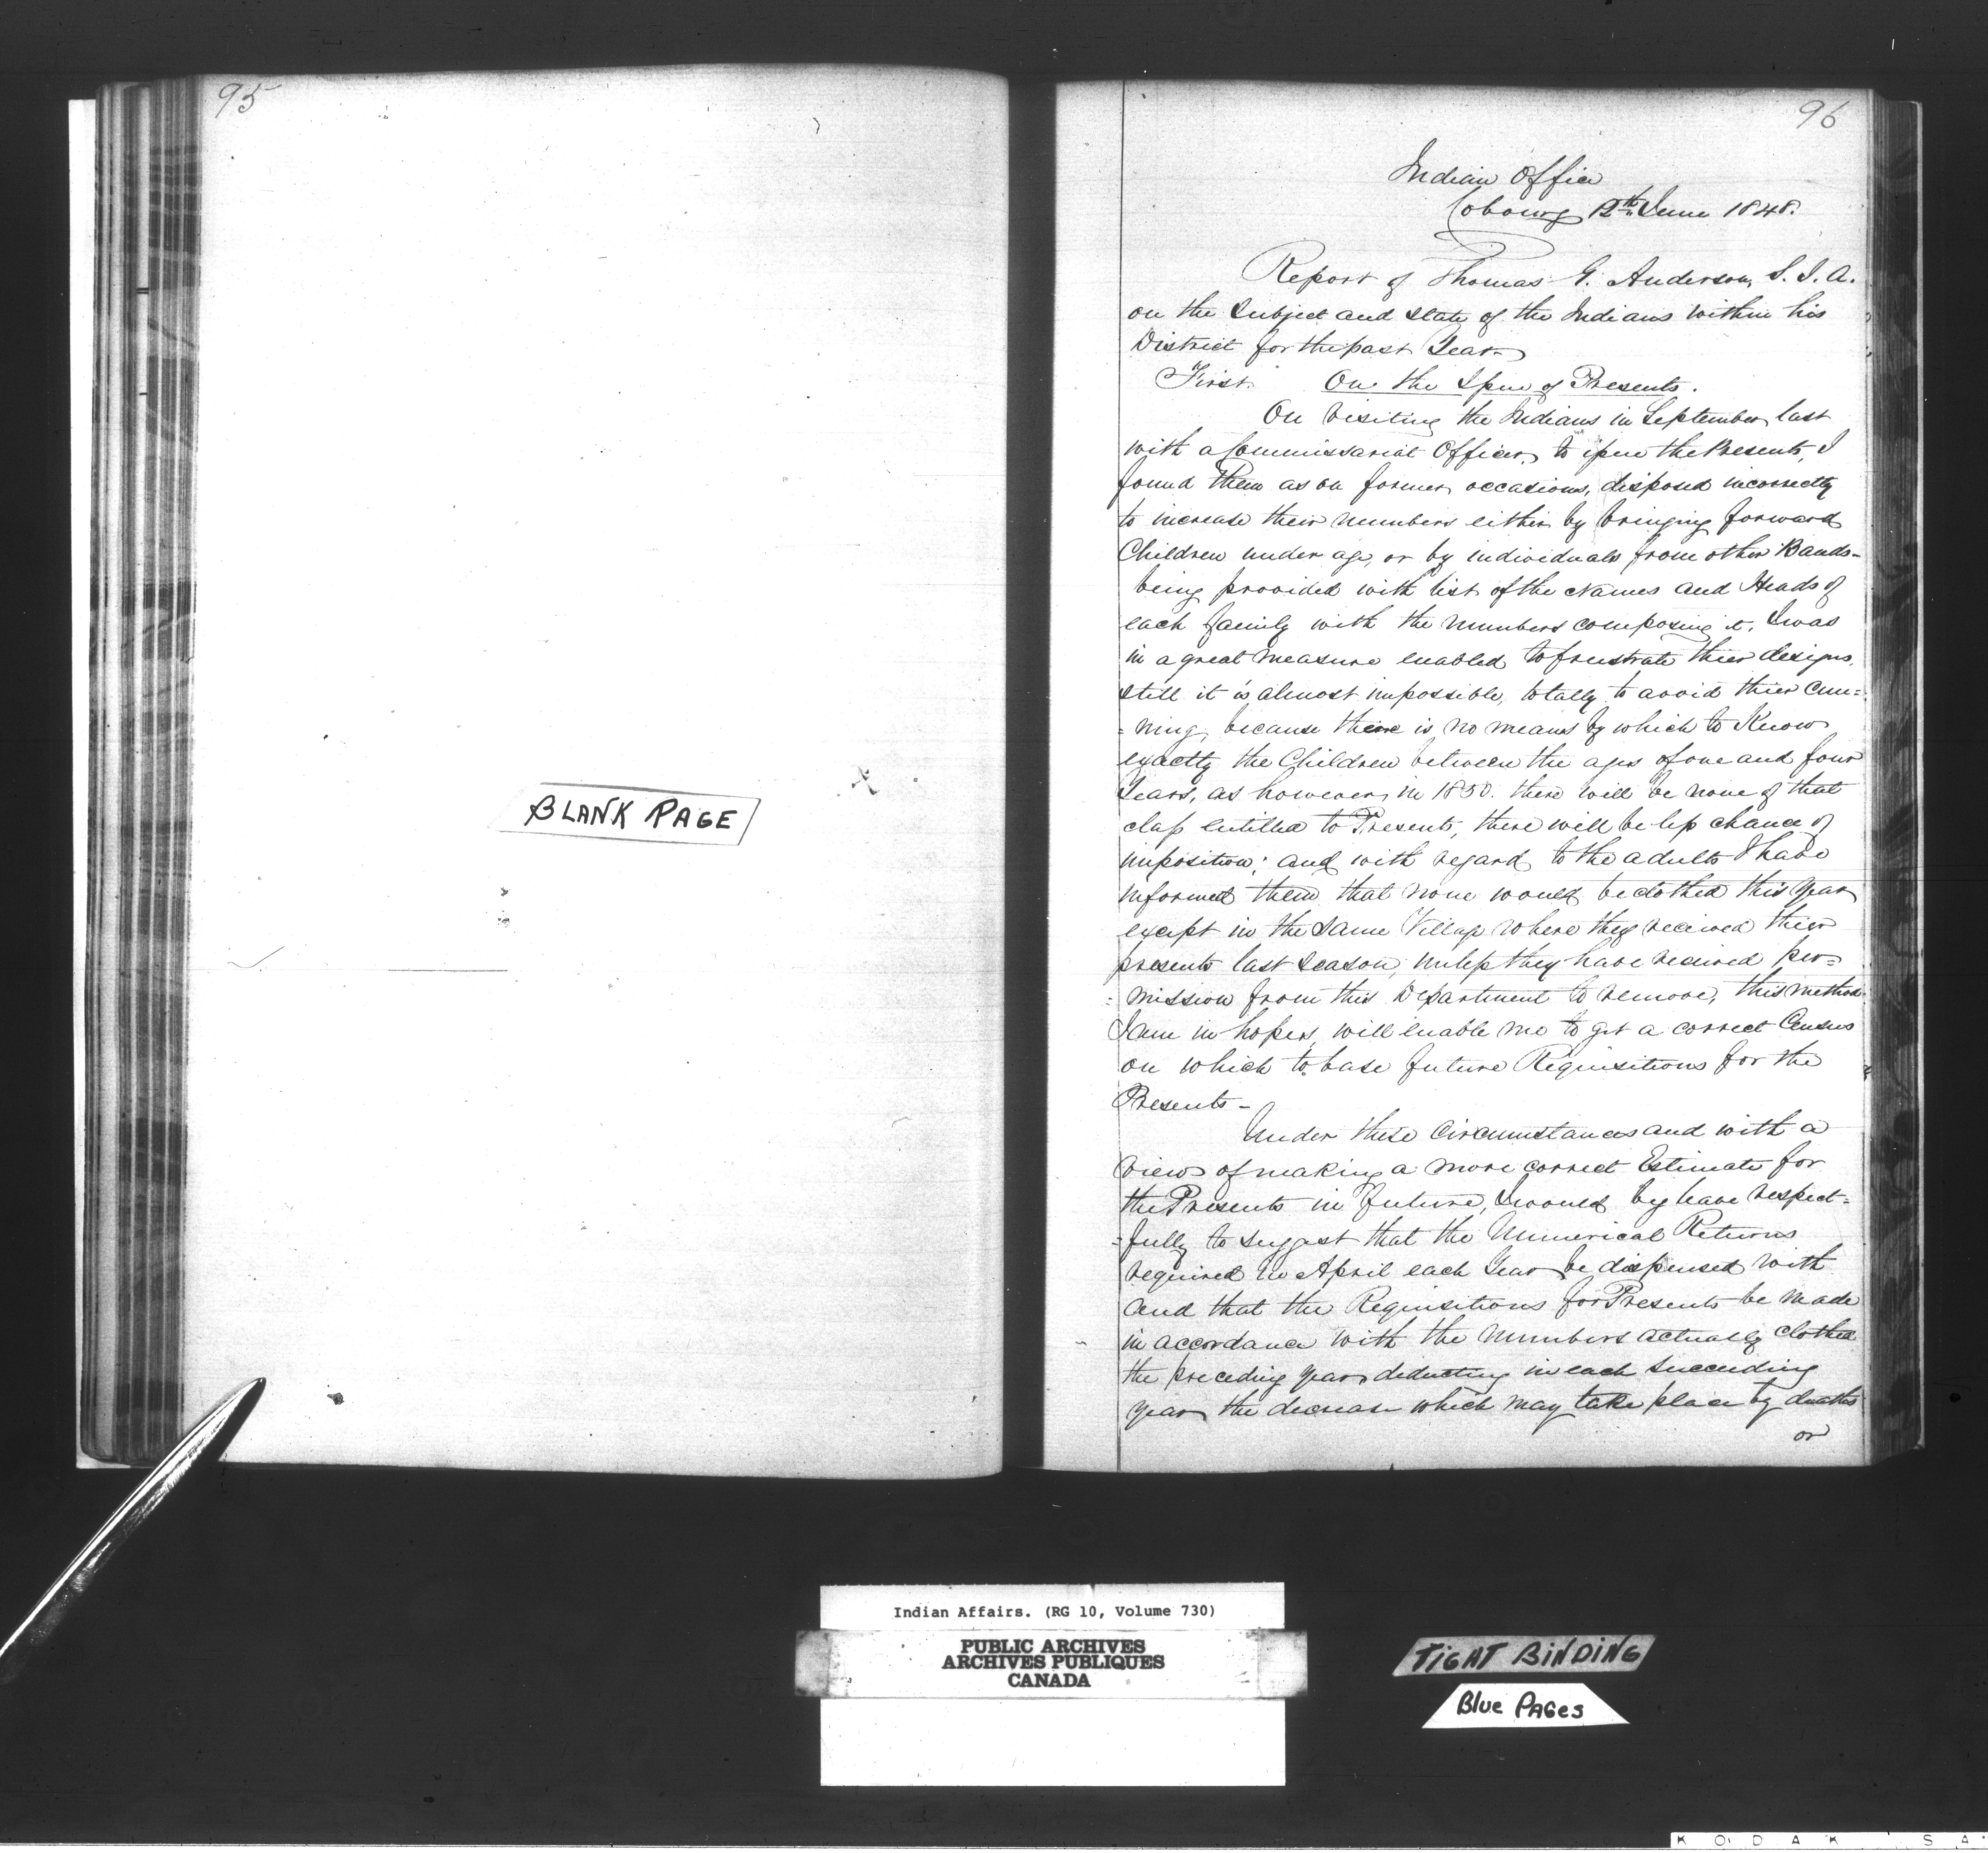 95
BLANK PAGE
96
Indian Office
Cobourg 12th June 1848.
Report of Thomas G. Anderson, S. I. A.
on the Subject and State of the Indians within his
District for the past Year.
First. On the Issue of Presents.
On visiting the Indians in September last
with a Commissariat Officer, to issue the Presents, I
found them as on former occasions, disposed incorrectly
to increase their numbers either by bringing forward
Children under age, or by individuals from other Bands-
being provided with list of the Names and Heads of
each family with the numbers composing it, I was
in a great measure enabled to frustrate thier designs,
still it is almost impossible, totally to avoid thier cun=
=ning, because there is no means by which to Know
exactly the Children between the ages of one and four
Years, as however, in 1850. there will be none of that
class entitled to Presents, there will be less chance of
imposition; and with regard to the adults I have
informed them that none would be clothed this year
except in the same Village where they received thier
presents last season, unless they have received per=
=mission from this Department to remove, this method
I am in hopes, will enable me to get a correct Census
on which to base future Requisitions for the
Presents-
Under these Circumstances and with a
view of making a more correct Estimate for
the Presents in future, I would beg leave respect=
=fully to suggest that the Numerical Returns
required in April each Year be dispensed with
and that the Requisitions for Presents be made
in accordance with the numbers actually clothed
the preceding year, deducting in each succeeding
year the decrease which may take place by deaths
or
Indian Affairs. (RG 10, Volume 730)
PUBLIC ARCHIVES
ARCHIVES PUBLIQUES
CANADA
TIGHT BINDING
Blue PAGes
KODAK SA